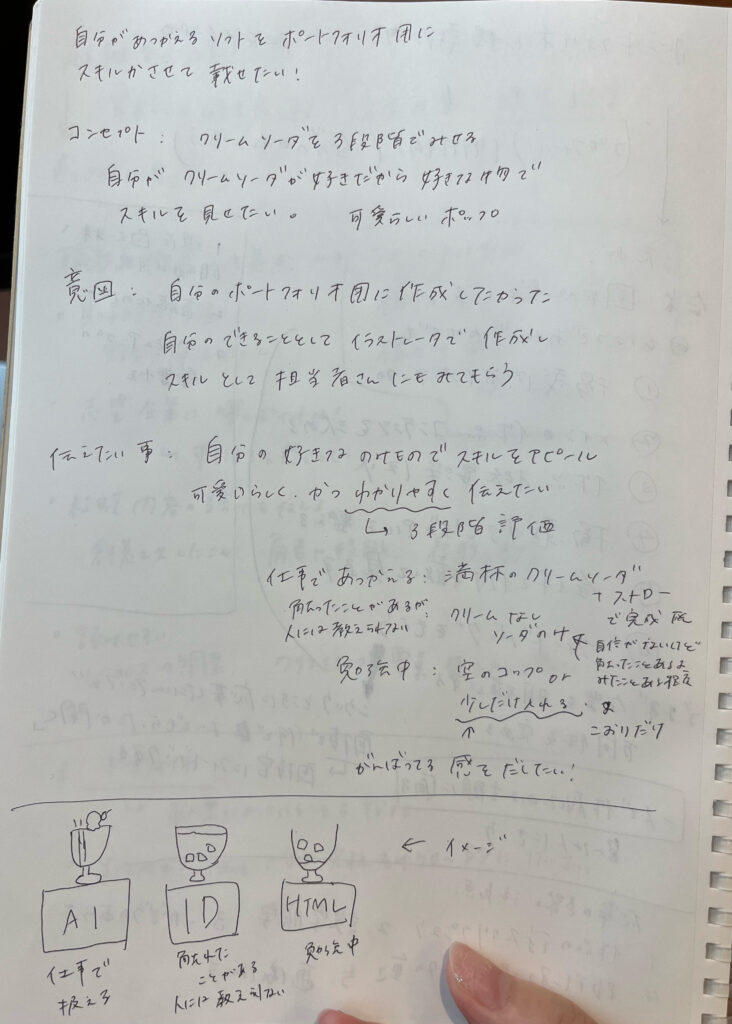 自分があつかえるソフトをポートフォリオ用に
スキルかさせて載せたい!
コンセプト: クリームソーダを3段階でみせる
自分がクリームソーダが好きだから好きな物で
スキルを見せたい。 可愛らしいポップ
意図: 自分のポートフォリオ用に作成したかった
自分のできることとしてイラストレータで作成し
スキルとして担当者さんにもみてもらう
伝えたい事: 自分の好きなのみものでスキルをアピール
可愛いらしく、かつわかりやすく伝えたい
↳ 3段階評価
仕事であつかえる: 満杯のクリームソーダ
+ストローで完成版
触ったことがあるが、
人には教えられない
クリームなし
ソーダのみ
自信がないけど
触ったことあるよ
みたことある程度
勉強中: 空のコップ or
少しだけ入れる
こおりだけ
↑
がんばってる感をだしたい!
← イメージ
AI ID HTML
仕事で
扱える
触れた
ことがある
人には教え切れない
勉強中